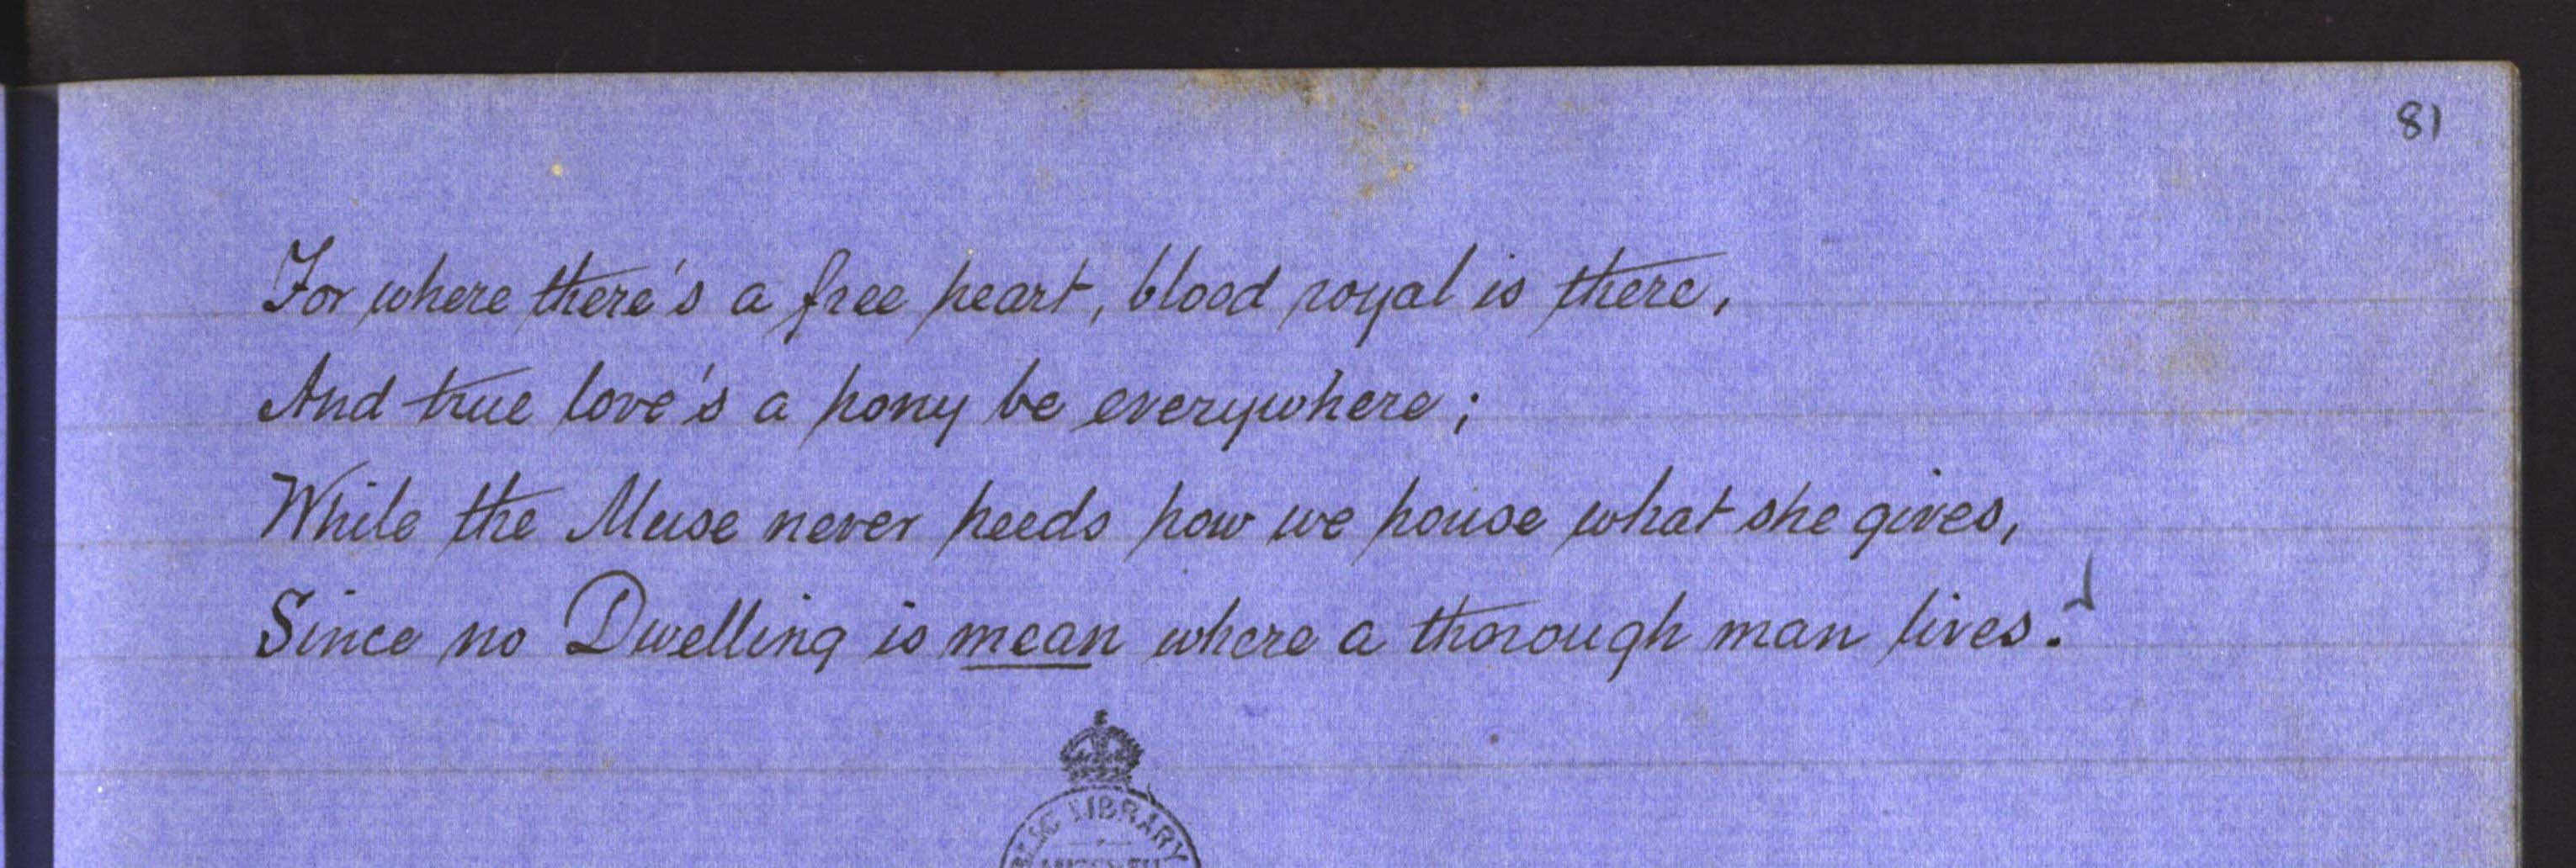 81
For where there's a free heart, blood royal is there,
And true love's a pony be everywhere;
While the Muse never heeds how we house what she gives,
Since no Dwelling is mean where a thorough man lives.
LIBRARY